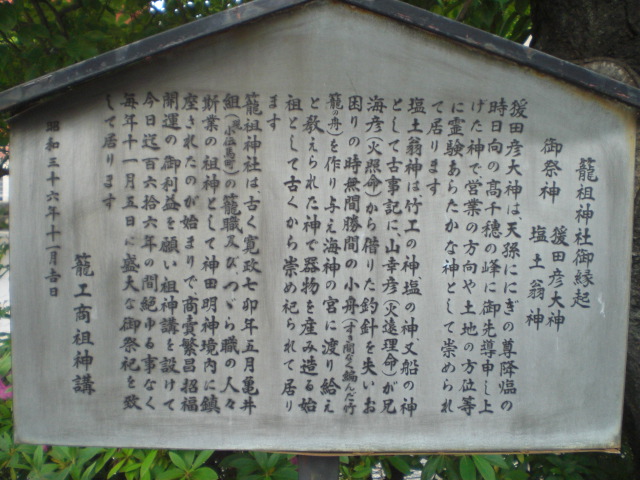 籠祖神社御縁起
御祭神 猿田彦大神
塩土翁神
猿田彦大神は、天孫ににぎの尊降臨の
時日向の高千穂の峰に御先導申し上
げた神で、営業の方向や土地の方位等
に霊験あらたかな神として崇められ
て居ります
塩土翁神は竹工の神塩の神、又船の神
として古事記に、山幸彦(火遠理命)が兄
海彦(火照命)から借りた釣針を失いお
困りの時無間勝間の小舟(すき間なく編んだ竹
籠の舟)を作り与え海神の宮に渡り給え
と教えられた神で器物を産み造る始
祖として古くから崇め祀られて居り
ます
籠祖神社は古く寛政七卯年五月亀井
組の籠職及び、つづら職の人々
斯業の祖神として神田明神境内に鎮
座されたのが始まりで商売繁昌招福
開運の御利益を願い祖神講を設けて
今日迄百六十六年の間絶ゆる事なく
毎年十一月五日に盛大な御祭祀を致
して居ります
昭和三十六年十一月吉日
籠工商祖神講